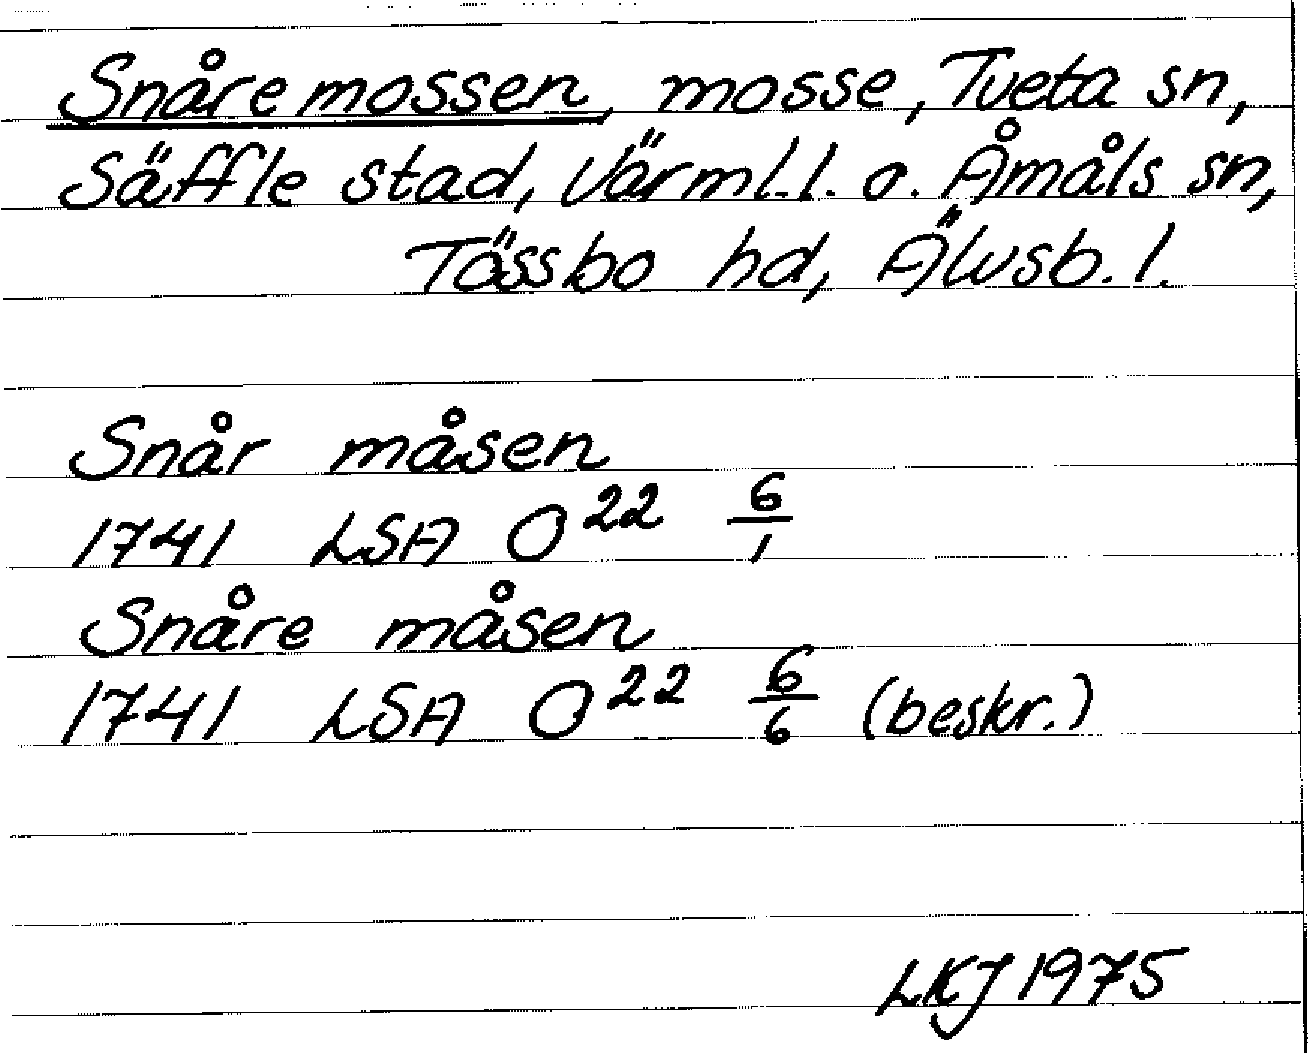 Snåremossen, mosse, Tveta sn,
Säffle stad, Värml.l. o. Åmåls sn,
Tössbo hd, Älvsb. l.
Snår måsen
1741 LSA O²² 6/1
Snåre måsen
1741 LSA O²² 6/6 (beskr.)
LKJ 1975